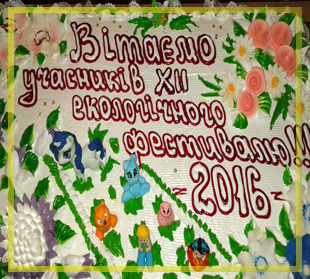 Вітаємо
учасників XII
екологічного
фестивалю!!!
2016